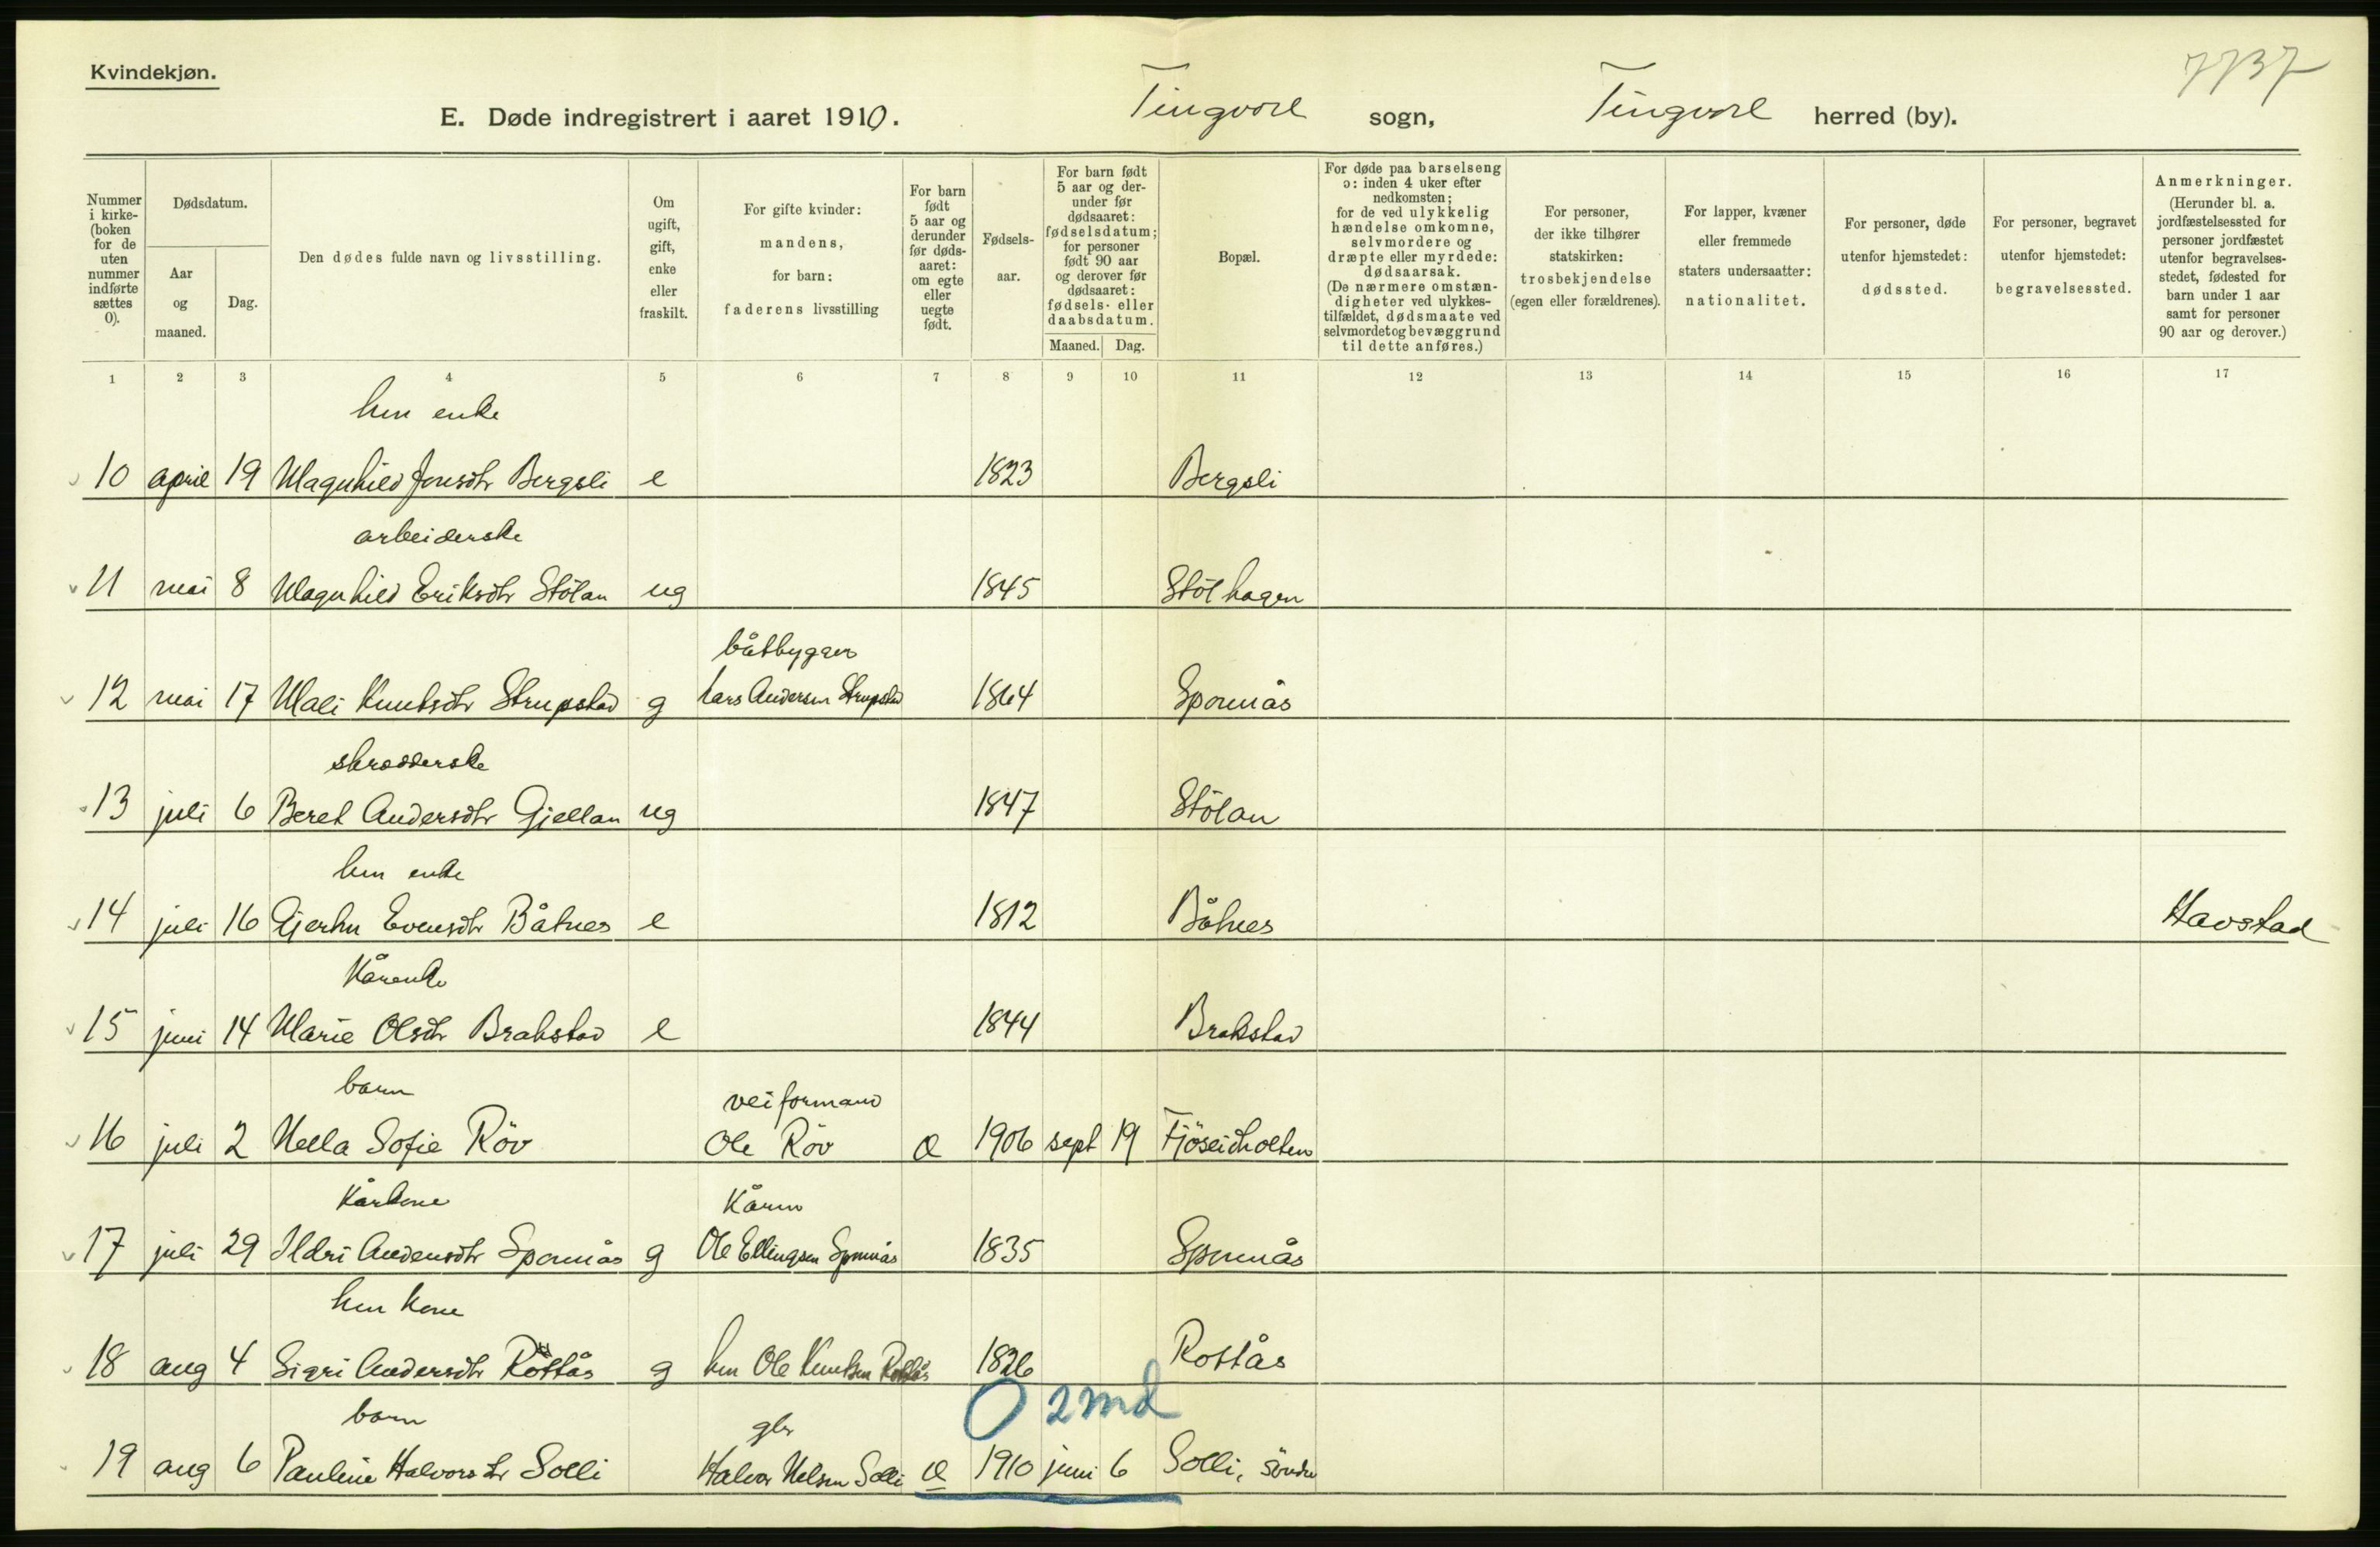 Kvindekjøn.
7737
E. Døde indregistrert i aaret 1910. Tingvoll sogn, Tingvoll herred (by).
Nummer i kirke- (boken for de uten nummer indførte sættes 0).
Dødsdatum.
Aar og maaned.
Dag.
Den dødes fulde navn og livsstilling.
Om ugift, gift, enke eller fraskilt.
For gifte kvinder: mandens, for barn: faderens livsstilling
For barn født 5 aar og derunder før døds- aaret: om egte eller uegte født.
Fødsels- aar.
For barn født 5 aar og der- under før dødsaaret: fødselsdatum; for personer født 90 aar og derover før dødsaaret: fødsels- eller daabsdatum.
Maaned. Dag.
Bopæl.
For døde paa barselseng ɔ: inden 4 uker efter nedkomsten; for de ved ulykkelig hændelse omkomne, selvmordere og dræpte eller myrdede: dødsaarsak. (De nærmere omstæn- digheter ved ulykkes- tilfældet, dødsmaate ved selvmordet og bevæggrund til dette anføres.)
For personer, der ikke tilhører statskirken: trosbekjendelse (egen eller forældrenes).
For lapper, kvæner eller fremmede staters undersaatter: nationalitet.
For personer, døde utenfor hjemstedet: dødssted.
For personer, begravet utenfor hjemstedet: begravelsessted.
Anmerkninger. (Herunder bl. a. jordfæstelsessted for personer jordfæstet utenfor begravelses- stedet, fødested for barn under 1 aar samt for personer 90 aar og derover.)
1 2 3 4 5 6 7 8 9 10 11 12 13 14 15 16 17
hm enke
10 april 19 Magnhild Jonsdtr Bergsli e 1823 Bergsli
arbeiderske
11 mai 8 Magnhild Eriksdtr Stölan ug 1845 Stölhagen
båtbygger
12 mai 17 Mali Knutsdtr Strupstad g Lars Andersen Strupstad 1864 Spornås
skrædderske
13 juli 6 Beret Andersdtr Gjellan ug 1847 Stölan
hm enke
14 juli 16 Gjertru Evensdtr Båtnes e 1812 Båtnes Havstad
Kårenke
15 juni 14 Marie Olsdtr Brakstad e 1844 Brakstad
barn veiformand
16 juli 2 Nella Sofie Röv Ole Röv æ 1906 sept 19 Fjöseidholten
Kårkone Kårm
17 juli 29 Ildri Andersdtr Spornås g Ole Ellingsen Spornås 1835 Spornås
hm kone
18 aug 4 Sigri Andersdtr Rottås g hm Ole Knutsen Rottås 1826 Rottås
O 2 md
barn gbr
19 aug 6 Pauline Halvorsdtr Solli Halvor Nelsen Solli æ 1910 juni 6 Solli, söndre